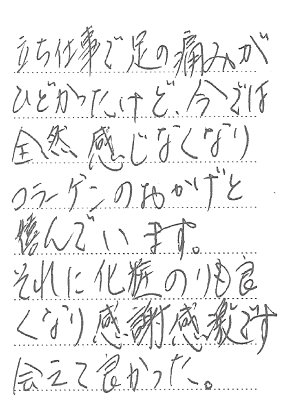 立ち仕事で足の痛みが
ひどかったけど、今では
全然感じなくなり
コラーゲンのおかげと
喜んでいます。
それに化粧のりも良
くなり感謝感激です
会えて良かった。